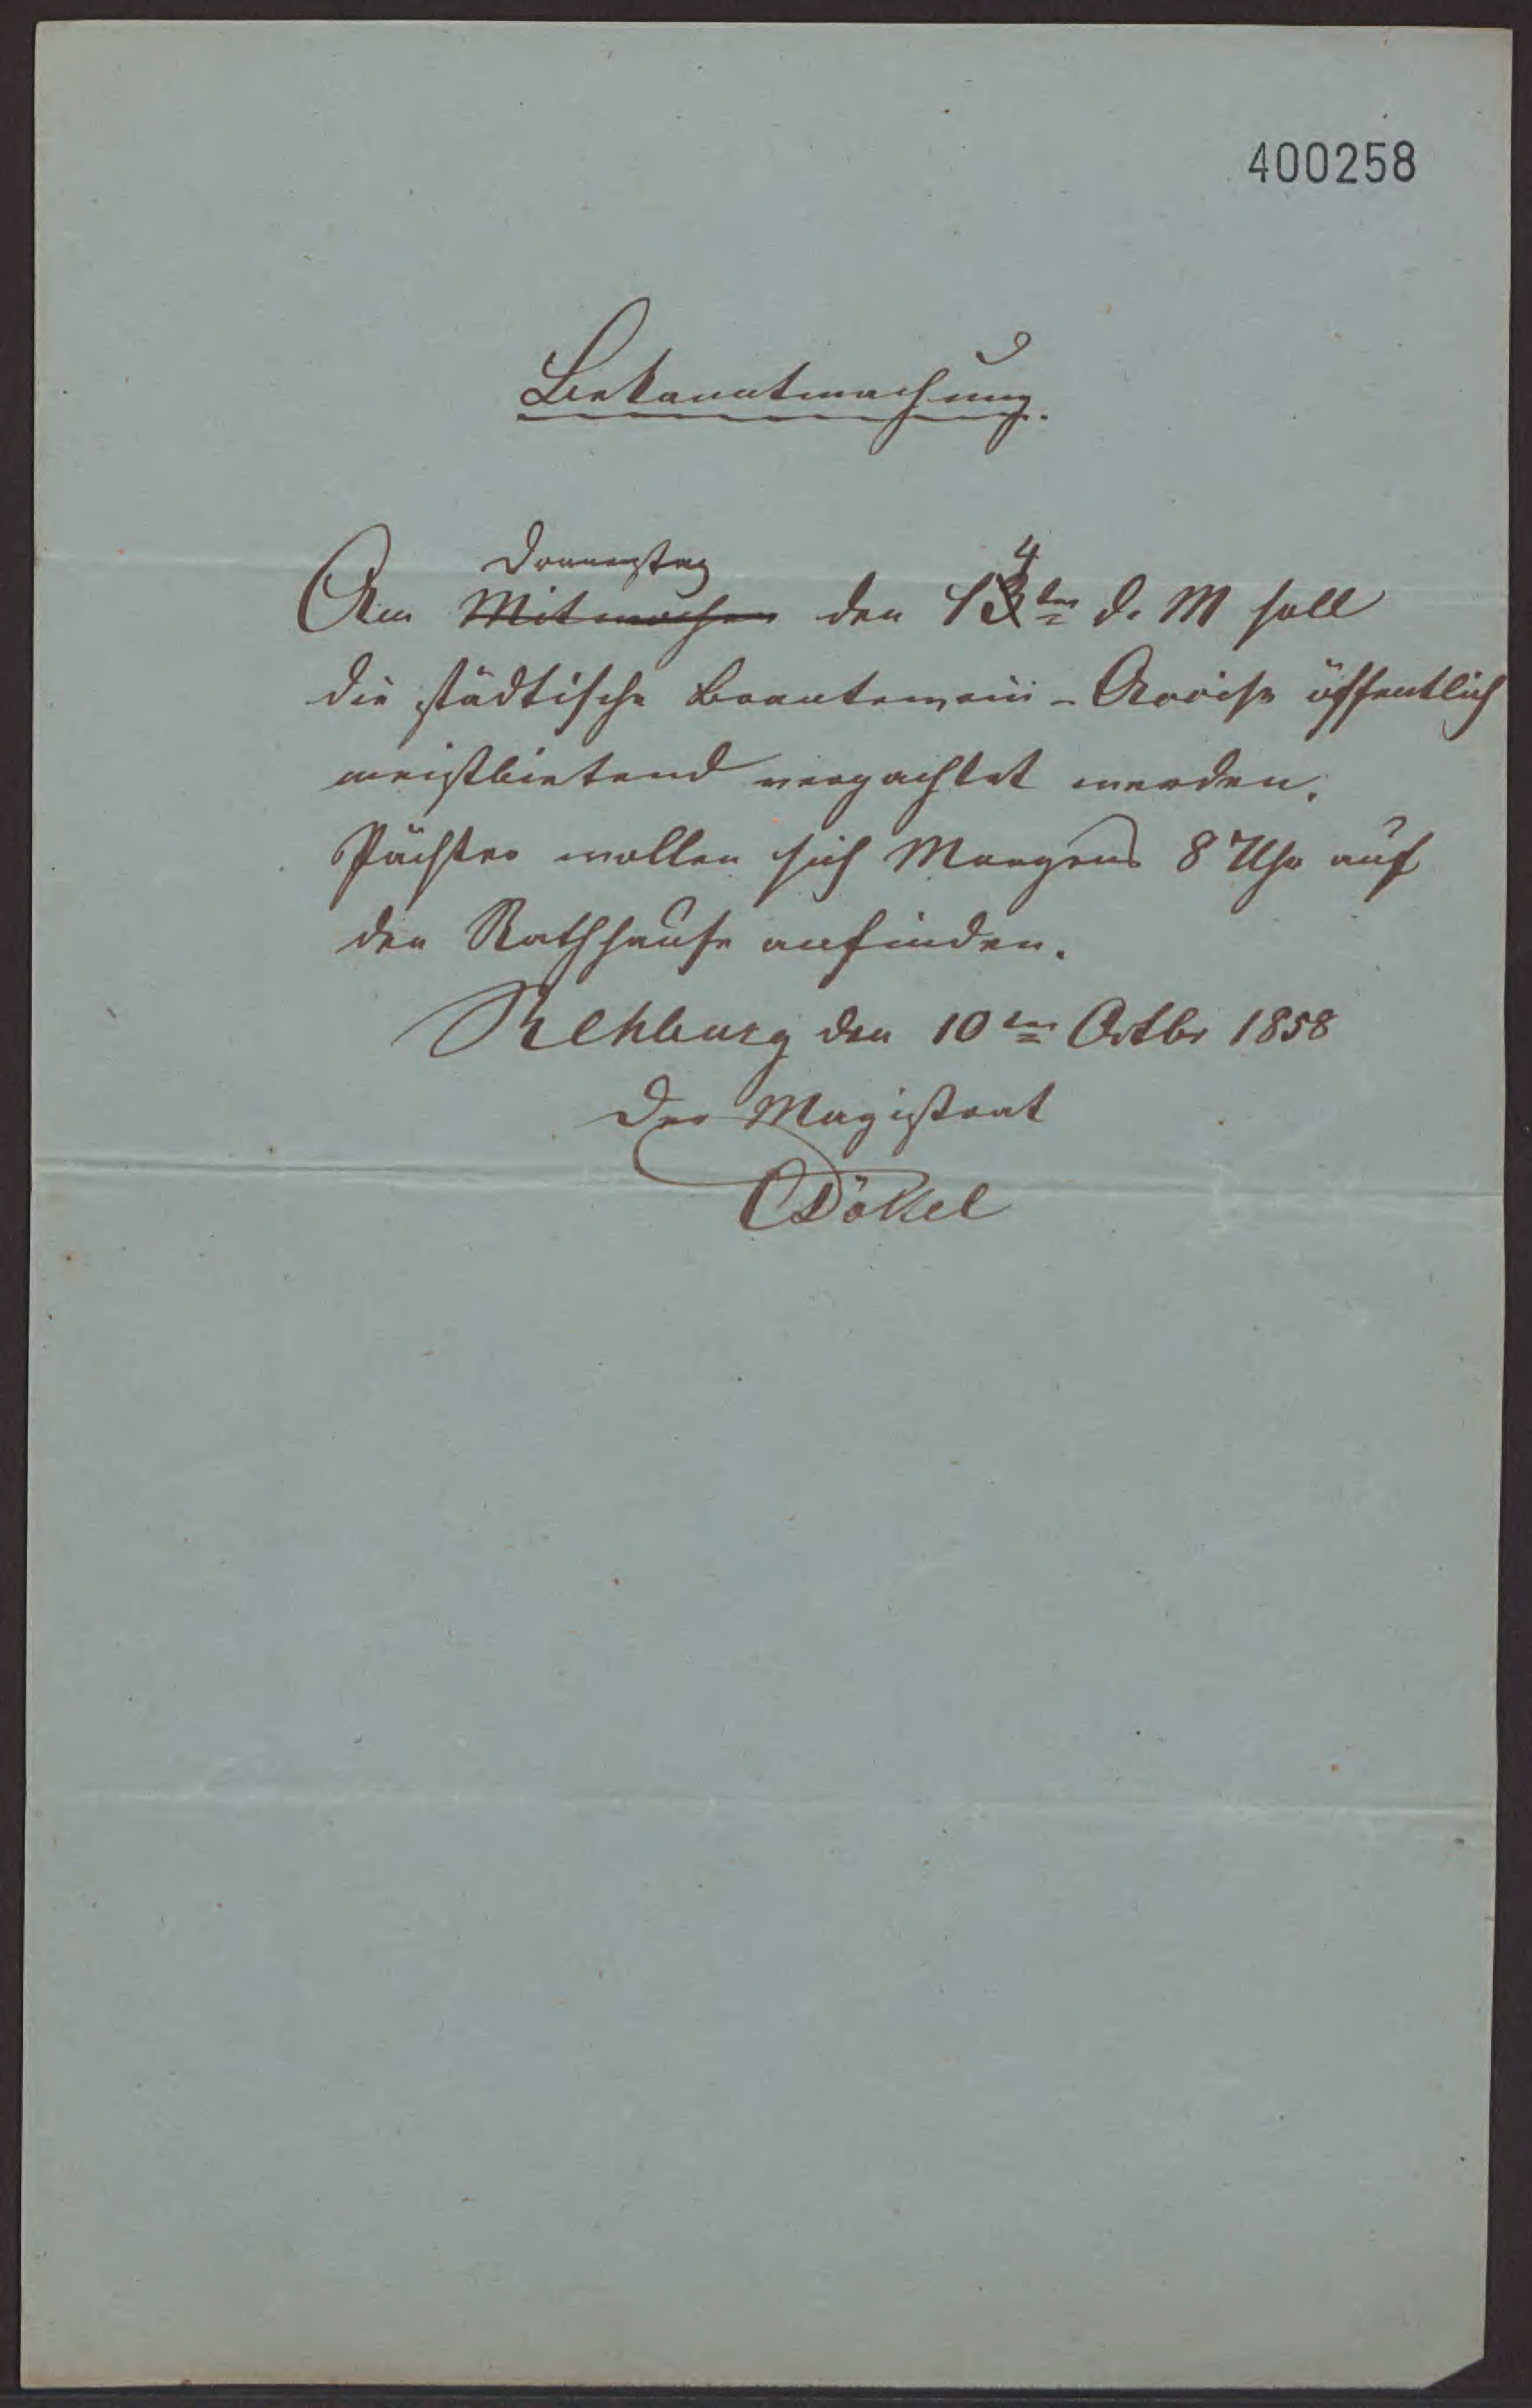 400258
Bekanntmachung.
Donnerstag 4
Am Mitwochen den 13ten d. M soll
die städtische Brantewein-Accise öffentlich
meistbietend verpachtet werden.
Pächter wollen sich Morgens 8 Uhr auf
den Rathhause anfinden.
Rehburg den 10ten Octbr 1858
Der Magistrat
Dökel